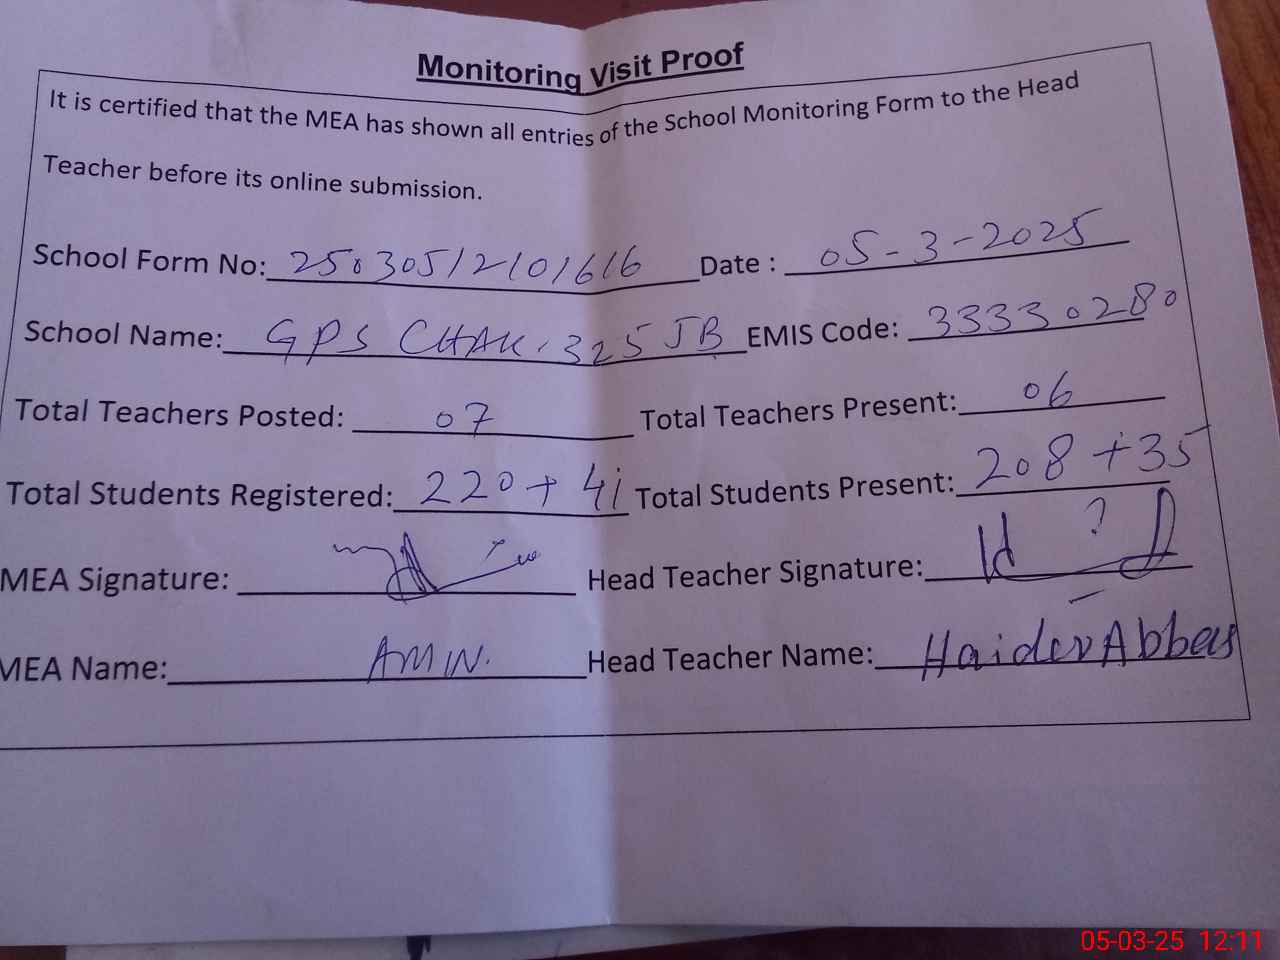 Monitoring Visit Proof
It is certified that the MEA has shown all entries of the School Monitoring Form to the Head
Teacher before its online submission.
School Form No: 25030512101616 Date : 05-3-2025
School Name: GPS CHAK. 325 JB EMIS Code: 33330280
Total Teachers Posted: 07 Total Teachers Present: 06
Total Students Registered: 220+41 Total Students Present: 208+35
MEA Signature: Head Teacher Signature:
MEA Name: AMIN. Head Teacher Name: Haider Abbas
05-03-25 12:11